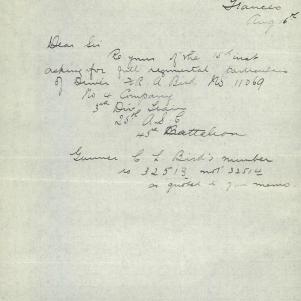 Frances
Aug 6th
Dear Sir
Re yours of the 15th inst
asking for full regimental particulars
of Driver A Bird No 11069
No 4 Company
3rd Div Train
25th A.S.C
45th Battalion
Gunner C L Bird's number
is 32513 not 32514
as quoted in your memo